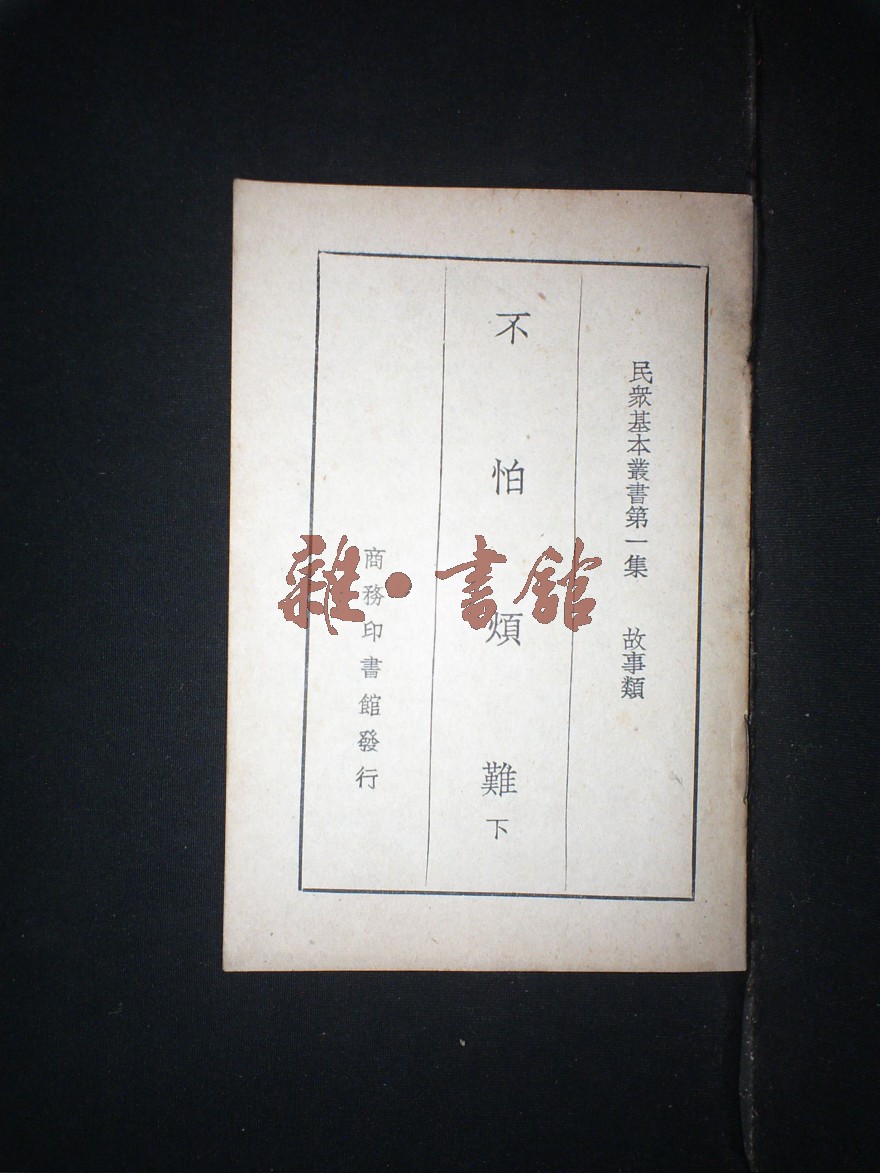 民衆基本叢書第一集　故事類
不怕煩難 下
商務印書館發行
雜·書館